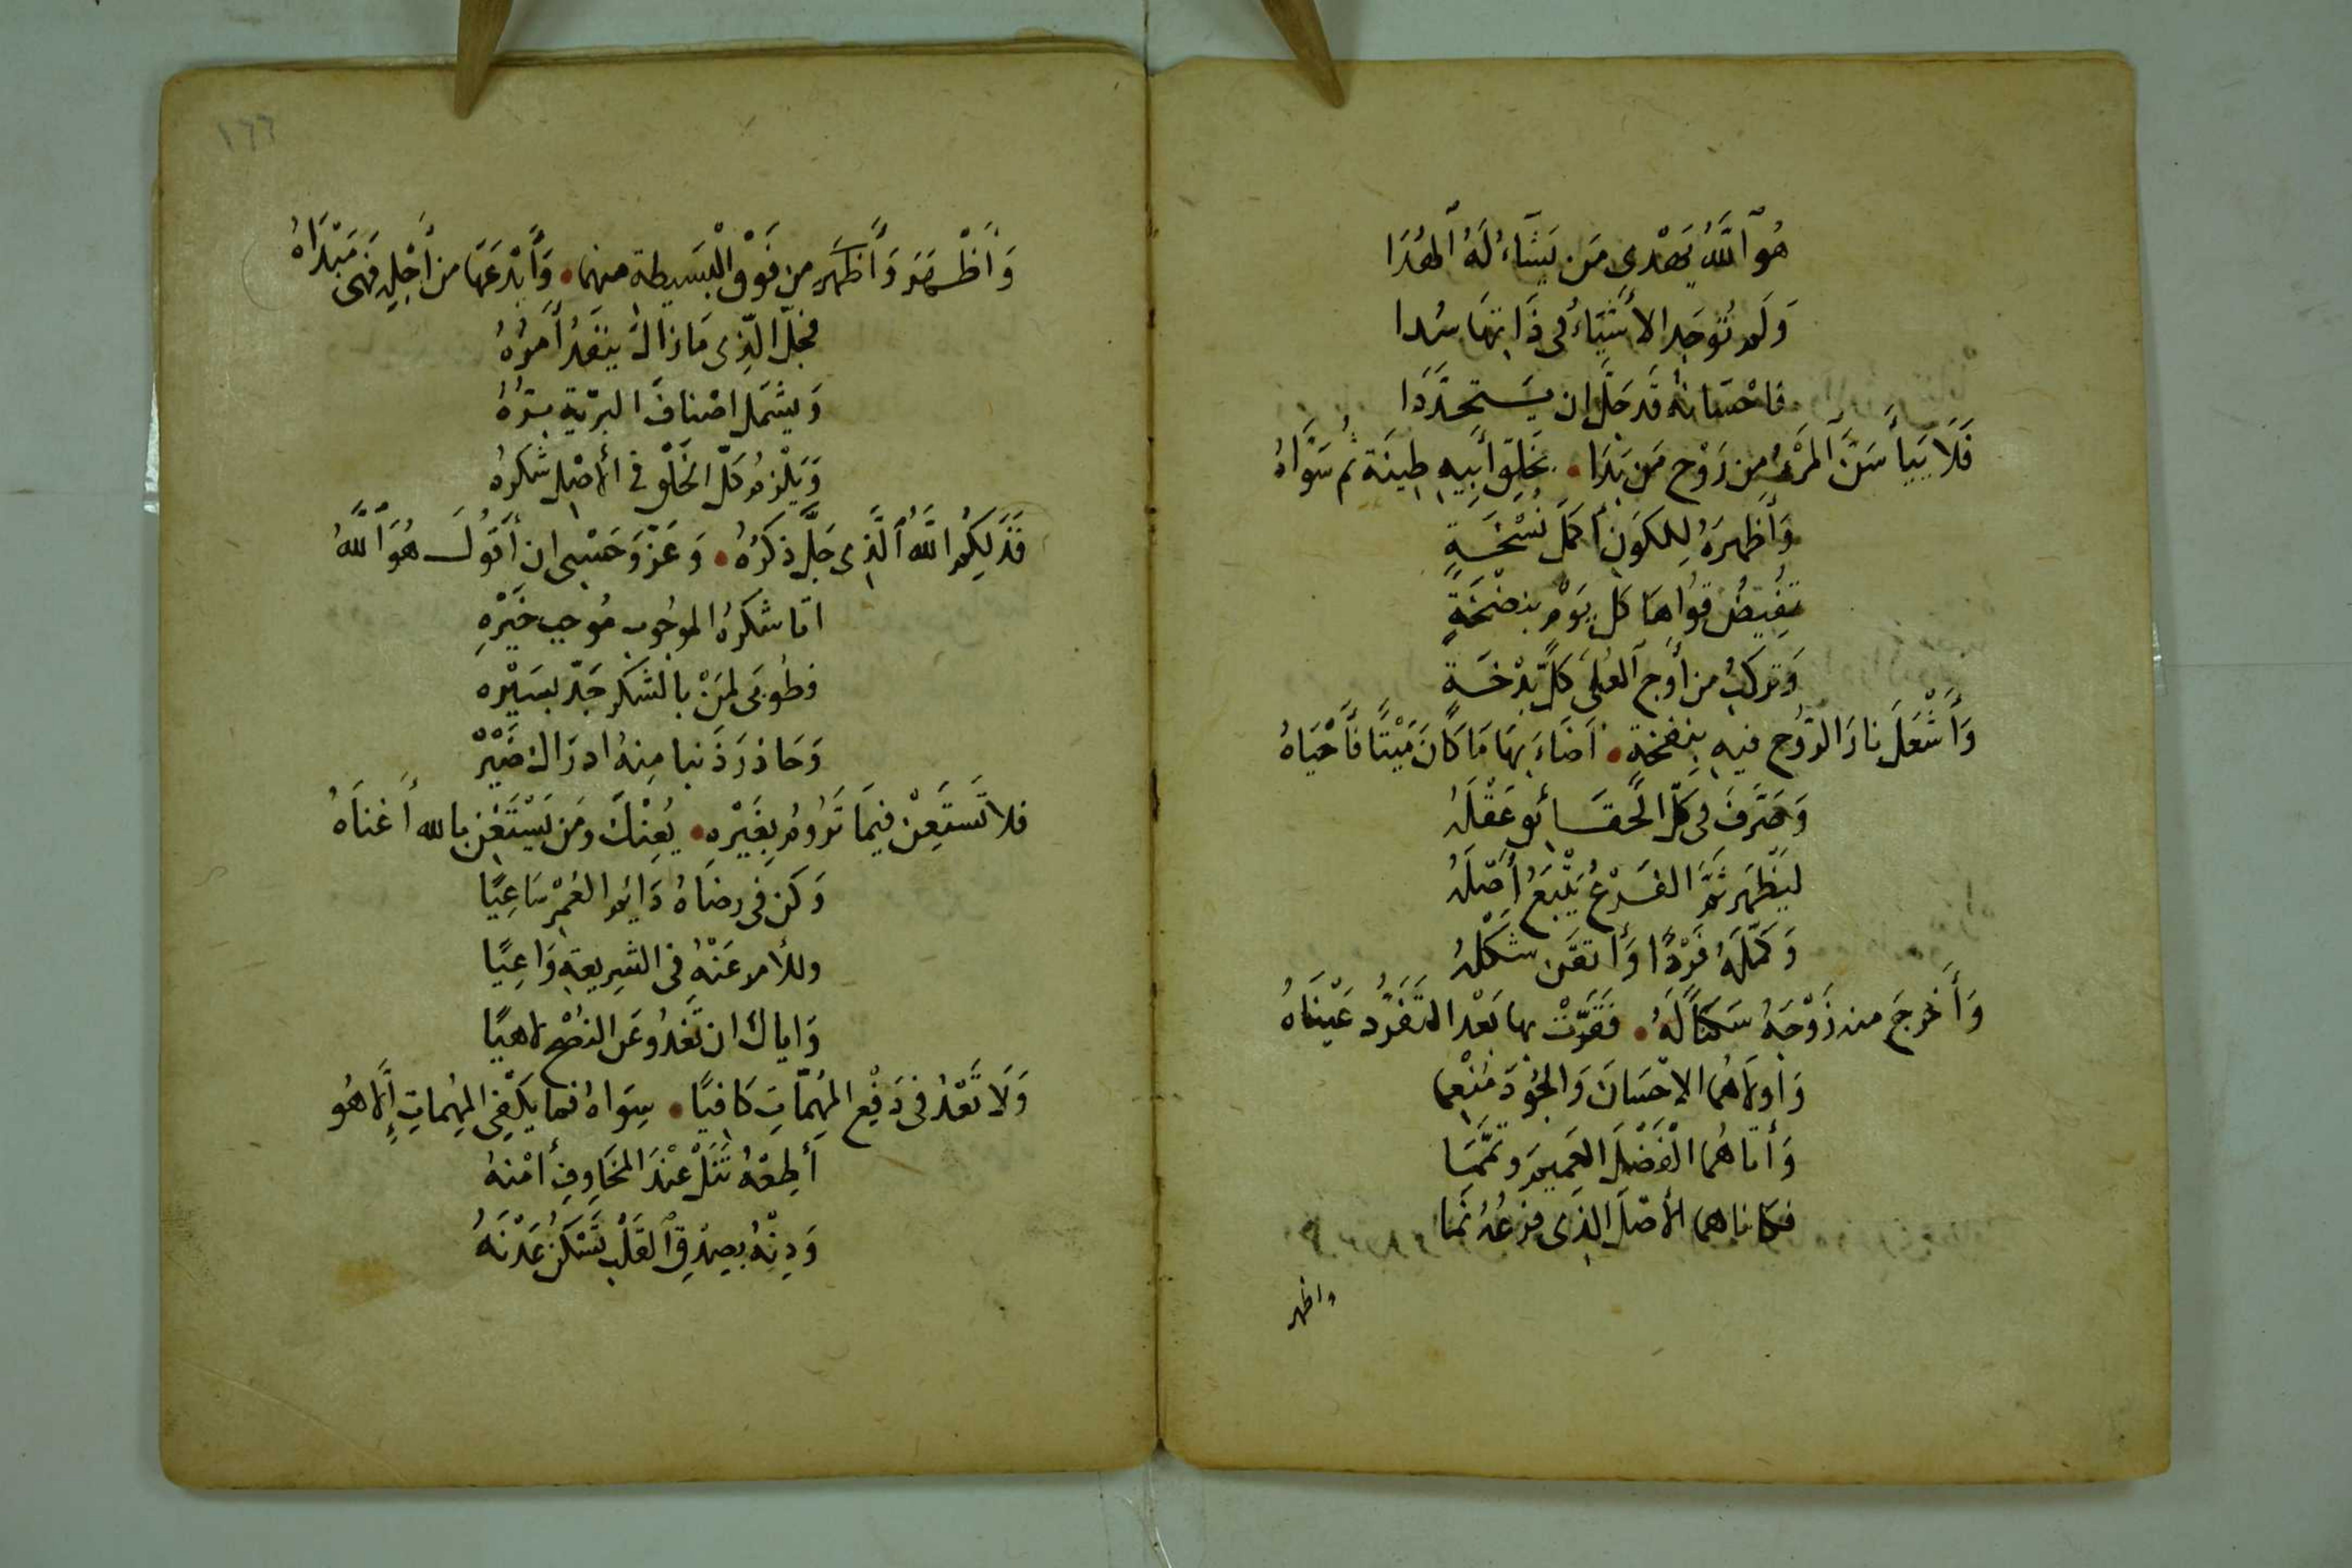 هُوَ ٱللَّهُ يَهْدِي مَن يَشَاءُ لَهُ ٱلهُدَا
وَلَم تُوجَدِ الأَشْيَاءُ فِي ذَاتِهَا سُدا
فاحْسَانهُ قَد جَلَّ ان يَستَحدَّدَا
فَلَا يَيأَسَنَّ ٱلمَرْءُ مِن رَوْحِ مَن بَدَا • بَخَلِقِ أَبِيهِ طِينَة ثُم سَوَّاهُ
وَأَظهرَهُ لِلكَونِ أَكمَلَ نُسْخَةٍ
تفِيضُ قوَاهَا كل يَوْمٍ بنضخَةٍ
وَتركبُ من أَوجِ ٱلعُلَى كلَّ بَدْخَةٍ
وَأَشْعَلَ نارَ الرّوُحِ فيهِ بنِفخةٍ • اَضَاءَ بهَا مَا كَانَ مَيْتًا فَأَحْيَاهُ
وَصَرَّفَ في كلّ الحَقَائقِ عَقْلَهُ
لِيَظْهَر ثَمَّ الفَرْعُ يَتْبَعُ أَصْلَهُ
وَكمّلَهُ فَرْدًا وَأَتقَن شكْلهُ
وَأَخرجَ منه زَوْجَهُ سَكنًا لَهُ • فَقَرّتْ بها بَعْد التَفَرُّد عَيْنَاهُ
وَأولاهُما الإحْسَانَ وَالجُودَ مُنْعِما
وَأَتاهُما الْفَضْلَ العَمِيمَ وتمَّمَا
فكانا هما الأصْلَ الذِى فرْعُهُ نَمَا
واظهر
١٦٦
وَأَظْهَرَ وَأَظهَر من فَوْقِ الْبَسِيطة منهما • وَأَبْدعَهَا من أَجْلِهِ فهَى مَبْدَاهُ
فجلّ الّذِى مَا زالَ ينفَدُ أَمرُهُ
وَيشمَل اصْنافَ البريّةِ برُّهُ
وَيَلْزمُ كلّ الخَلْقِ فى الأصْلِ شكرُهُ
فَذلِكُم اللهُ ٱلَّذِى جَلَّ ذِكرُهُ • وَعَزّ وَحَسْبِى ان أَقولَ هُوَ ٱللَّهُ
اتما شكرُهُ الموجُوب مُوجب خَيْرهِ
فطُوبَى لمَنْ بالشكرِ جَدّ بسَيْره
وَحَاذرَ ذَنبا مِنهُ ادرَاك ضَيْرْ
فلا تَستَعِنْ فِيمَا تَرُومُ بِغَيْرهِ • يُعِنْكَ ومَن يَسْتَغْنِ بالله أَغنَاهُ
وَكن فى رضَاهُ دَائِم العُمْرِ سَاعِيًا
وللأمر عَنْهُ فى الشرِيعةِ وَاعِيًا
وَاياكَ ان تَغدُو عَن النصْحِ لاهيًا
وَلَا تَعْدُ فى دَفْعِ المُهِمّاتِ كَافيًا • سِوَاهُ فما يَكْفِى المهِماتِ إِلّا هُو
أَطِعْهُ تَنَلْ عِنْدَ المخَاوِفِ أَمْنهُ
وَدِنْهُ بصِدْقِ ٱلقَلْبِ تَسْكنُ عَدْنَهُ